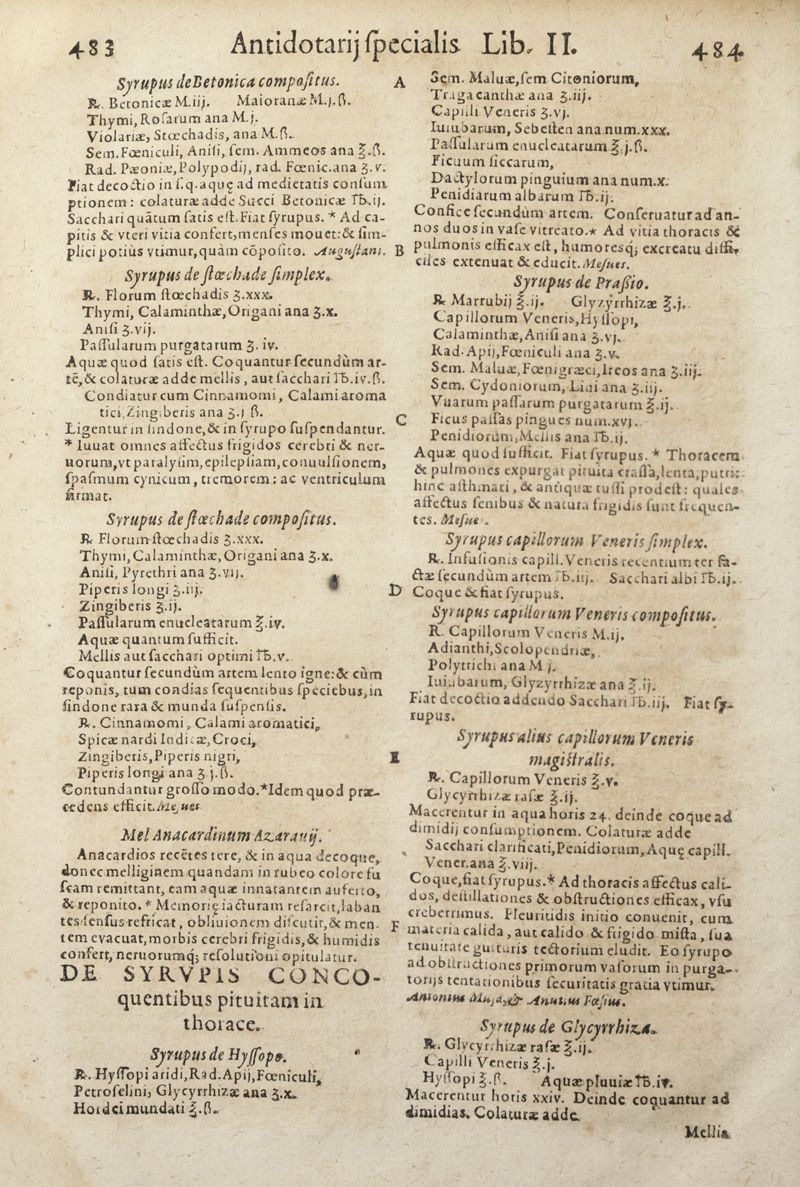 483 Antidotarij ſpecialis Lib. II. 484
Syrupus de Betonica compoſitus.
℞. Betonicæ M.iij. Maioranæ M.j.ß.
Thymi, Roſarum ana M.j.
Violariæ, Stœchadis, ana M.ß.
Sem. Fœniculi, Aniſi, ſem. Ammeos ana ℥.ß.
Rad. Pæoniæ, Polypodij, rad. Fœnic. ana ʒ.v.
Fiat decoctio in ſ.q. aquę ad medietatis conſum
ptionem: colaturæ adde Succi Betonicæ ℔.ij.
Sacchari quātum ſatis eſt. Fiat ſyrupus. * Ad ca-
pitis & vteri vitia confert, menſes mouet: & ſim-
plici potiùs vtimur, quàm cōpoſito. Auguſtani.
Syrupus de ſtœchade ſimplex.
℞. Florum ſtœchadis ʒ.xxx.
Thymi, Calaminthæ, Origani ana ʒ.x.
Aniſi ʒ.vij.
Paſſularum purgatarum ʒ. iv.
Aquæ quod ſatis eſt. Coquantur ſecundùm ar-
tē, & colaturæ adde mellis, aut ſacchari ℔.iv.ß.
Condiatur cum Cinnamomi, Calami aroma
tici, Zingiberis ana ʒ.j ß.
Ligentur in ſindone, & in ſyrupo ſuſpendantur.
* Iuuat omnes affectus frigidos cerebri & ner-
uorum, vt paralyſim, epilepſiam, conuulſionem,
ſpaſmum cynicum, tremorem: ac ventriculum
firmat.
Syrupus de ſtœchade compoſitus.
℞ Florum ſtœchadis ʒ.xxx.
Thymi, Calaminthæ, Origani ana ʒ.x.
Aniſi, Pyrethri ana ʒ.vij.
Piperis longi ʒ.iij.
Zingiberis ʒ.ij.
Paſſularum enucleatarum ℥.iv.
Aquæ quantum ſufficit.
Mellis aut ſacchari optimi ℔.v.
Coquantur ſecundum artem lento igne: & cùm
reponis, tum condias ſequentibus ſpeciebus, in
ſindone rara & munda ſuſpenſis.
℞. Cinnamomi, Calami aromatici,
Spicæ nardi Indicæ, Croci,
Zingiberis, Piperis nigri,
Piperis longi ana ʒ j.ß.
Contundantur groſſo modo. * Idem quod præ-
cedens efficit. Meſues
Mel Anacardinum Azarauij.
Anacardios recētes tere, & in aqua decoque,
donec melliginem quandam in rubeo colore fu
ſcam remittant, eam aquæ innatantem auferto,
& reponito. * Memorię iacturam reſarcit, laban
tes ſenſus refricat, obliuionem diſcutit, & men-
tem euacuat, morbis cerebri frigidis, & humidis
confert, neruorumq; reſolutioni opitulatur.
DE SYRVPIS CONCO-
quentibus pituitam in
thorace.
Syrupus de Hyſſopo.
℞. Hyſſopi aridi, Rad. Apij, Fœniculi,
Petroſelini, Glycyrrhizæ ana ʒ.x.
Hordei mundati ℥.ß.
A Sem. Maluæ, ſem Citoniorum,
Tragacanthæ ana ʒ.iij.
Capilli Veneris ʒ.vj.
Iuiubarum, Sebeſten ana num.xxx.
Paſſularum enucleatarum ℥.j.ß.
Ficuum ſiccarum,
Dactylorum pinguium ana num.x.
Penidiarum albarum ℔.ij.
Confice ſecundùm artem. Conſeruatur ad an-
nos duos in vaſe vitreato. * Ad vitia thoracis &
B pulmonis efficax eſt, humoresq; excreatu diffi-
ciles extenuat & educit. Meſues.
Syrupus de Praſſio.
℞ Marrubij ℥.ij. Glyzyrrhizæ ℥.j.
Capillorum Veneris, Hyſſopi,
Calaminthæ, Aniſi ana ʒ.vj.
Rad. Apij, Fœniculi ana ʒ.v.
Sem. Maluæ, Fœnigræci, Ireos ana ʒ.iij.
Sem. Cydoniorum, Lini ana ʒ.iij.
Vuarum paſſarum purgatarum ℥.ij.
C Ficus paſſas pingues num.xvj.
Penidiorum, Mellis ana ℔.ij.
Aquæ quod ſufficit. Fiat ſyrupus. * Thoracem
& pulmones expurgat pituita craſſa, lenta, putri:
hinc aſthmati, & antiquæ tuſſi prodeſt: quales
affectus ſenibus & natura frigidis ſunt frequen-
tes. Meſue.
Syrupus capillorum Veneris ſimplex.
℞. Infuſionis capill. Veneris recentium ter fa-
ctæ ſecundùm artem ℔.iij. Sacchari albi ℔.ij.
D Coque & fiat ſyrupus.
Syrupus capillorum Veneris compoſitus.
℞. Capillorum Veneris M.ij.
Adianthi, Scolopendriæ,
Polytrichi ana M j.
Iuiubarum, Glyzyrrhizæ ana ℥ ij.
Fiat decoctio addendo Sacchari ℔.iij. Fiat ſy-
rupus.
Syrupus alius capillorum Veneris
E magiſtralis.
℞. Capillorum Veneris ℥.v.
Glycyrrhizæ raſæ ℥.ij.
Macerentur in aqua horis 24. deinde coque ad
dimidij conſumptionem. Colaturæ adde
Sacchari clarificati, Penidiorum, Aquę capill.
Vener. ana ℥.viij.
Coque, fiat ſyrupus. * Ad thoracis affectus cali-
dos, deſtillationes & obſtructiones efficax, vſu
creberrimus. Pleuritidis initio conuenit, cum
F materia calida, aut calido & frigido miſta, ſua
tenuitate gutturis tectorium eludit. Eo ſyrupo
ad obſtructiones primorum vaſorum in purga-
torijs tentationibus ſecuritatis gratia vtimur.
Antonius Muſa, & Anutius Fœſius.
Syrupus de Glycyrrhiza.
℞. Glycyrrhizæ raſæ ℥.ij.
Capilli Veneris ℥.j.
Hyſſopi ℥.ß. Aquæ pluuiæ ℔.iv.
Macerentur horis xxiv. Deinde coquantur ad
dimidias. Colaturæ adde
Mellis